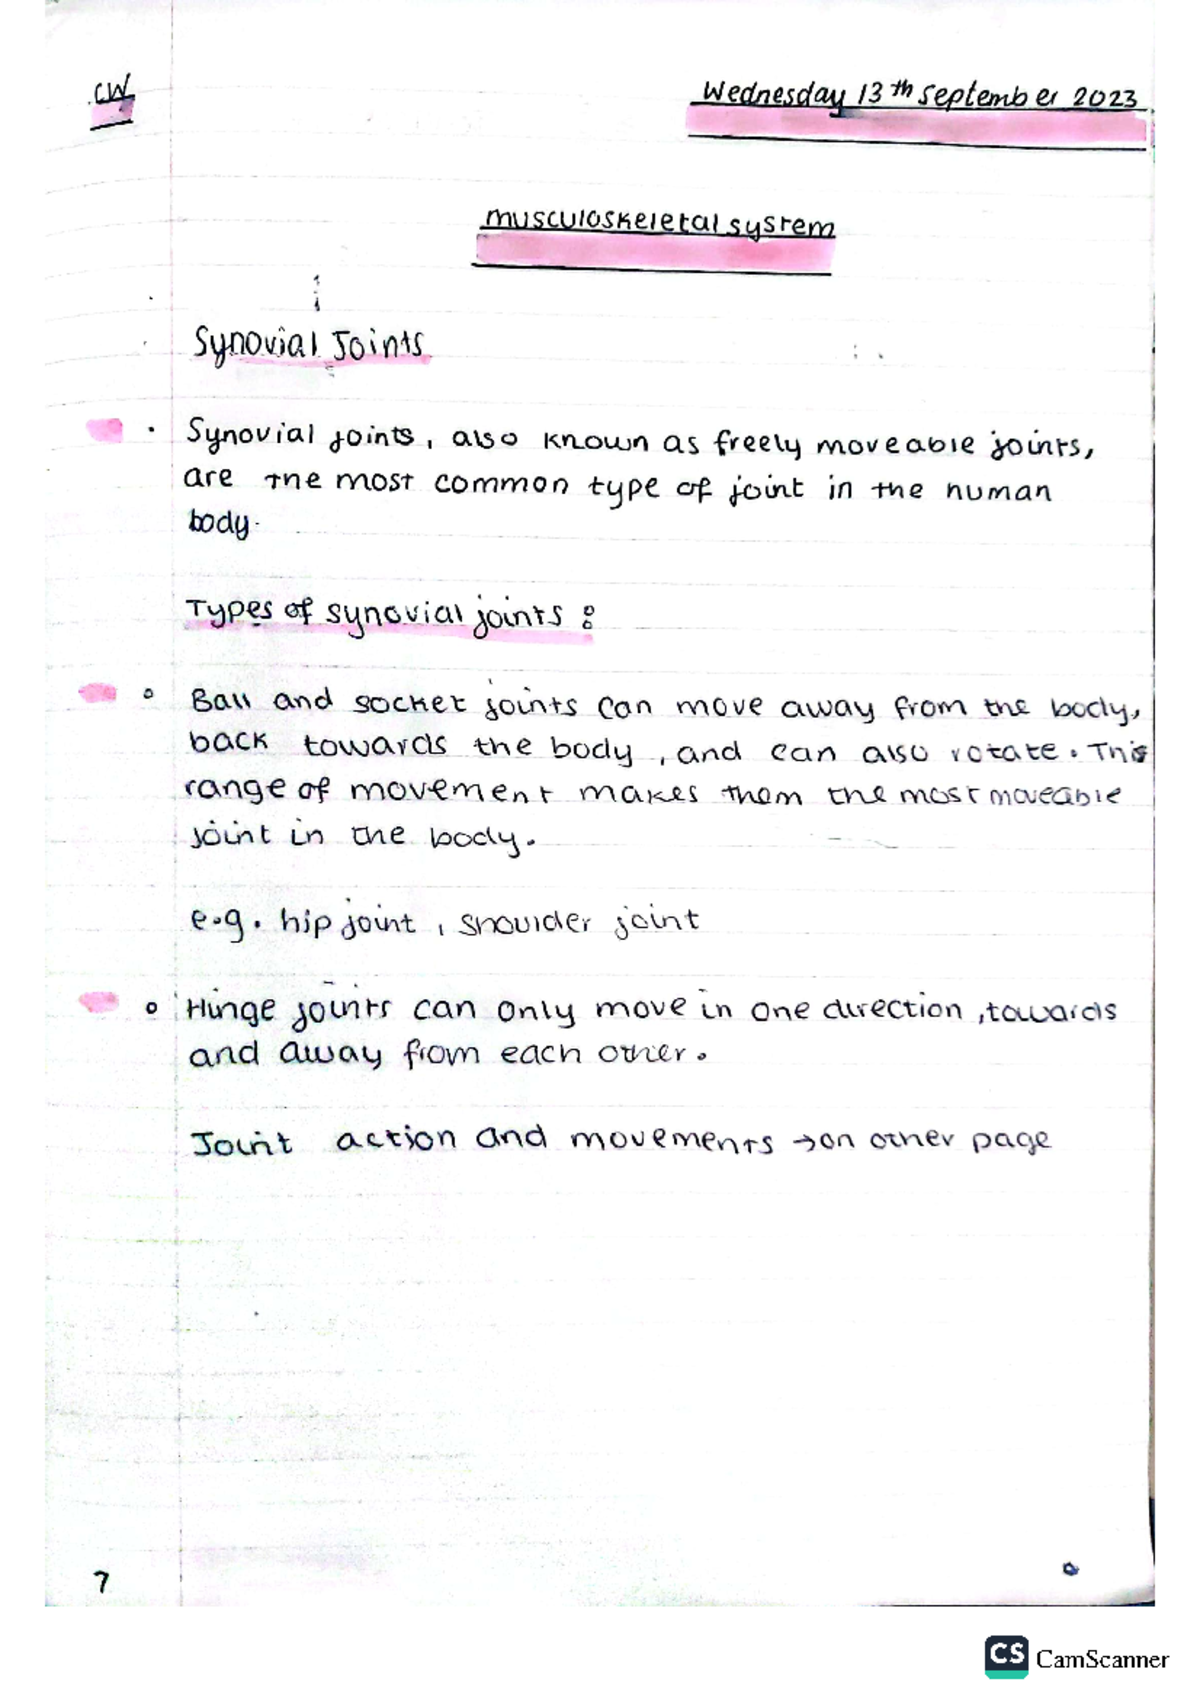 CW
Wednesday 13th september 2023
musculoskeletal system
Synovial Joints
Synovial joints, also known as freely moveable joints,
are the most common type of joint in the human
body.
Types of synovial joints :
Ball and socket joints can move away from the body,
back towards the body, and can also rotate. This
range of movement makes them the most moveable
joint in the body.
e.g. hip joint, shoulder joint
Hinge joints can only move in one direction, towards
and away from each other.
Joint action and movements → on other page
7
CS CamScanner